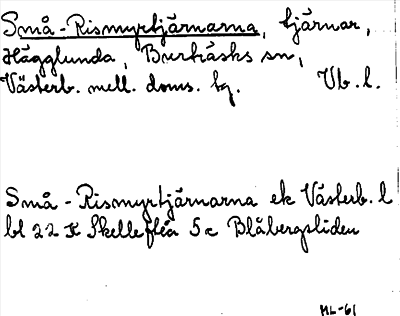 Små-Rismyrtjärnarna, tjärnar,
Hägglunda, Burträsks sn,
Västerb. mell. doms. tg. Vb. l.
Små-Rismyrtjärnarna ek Västerb. l
bl 22 K Skellefteå 5c Blåbergsliden
ML-61